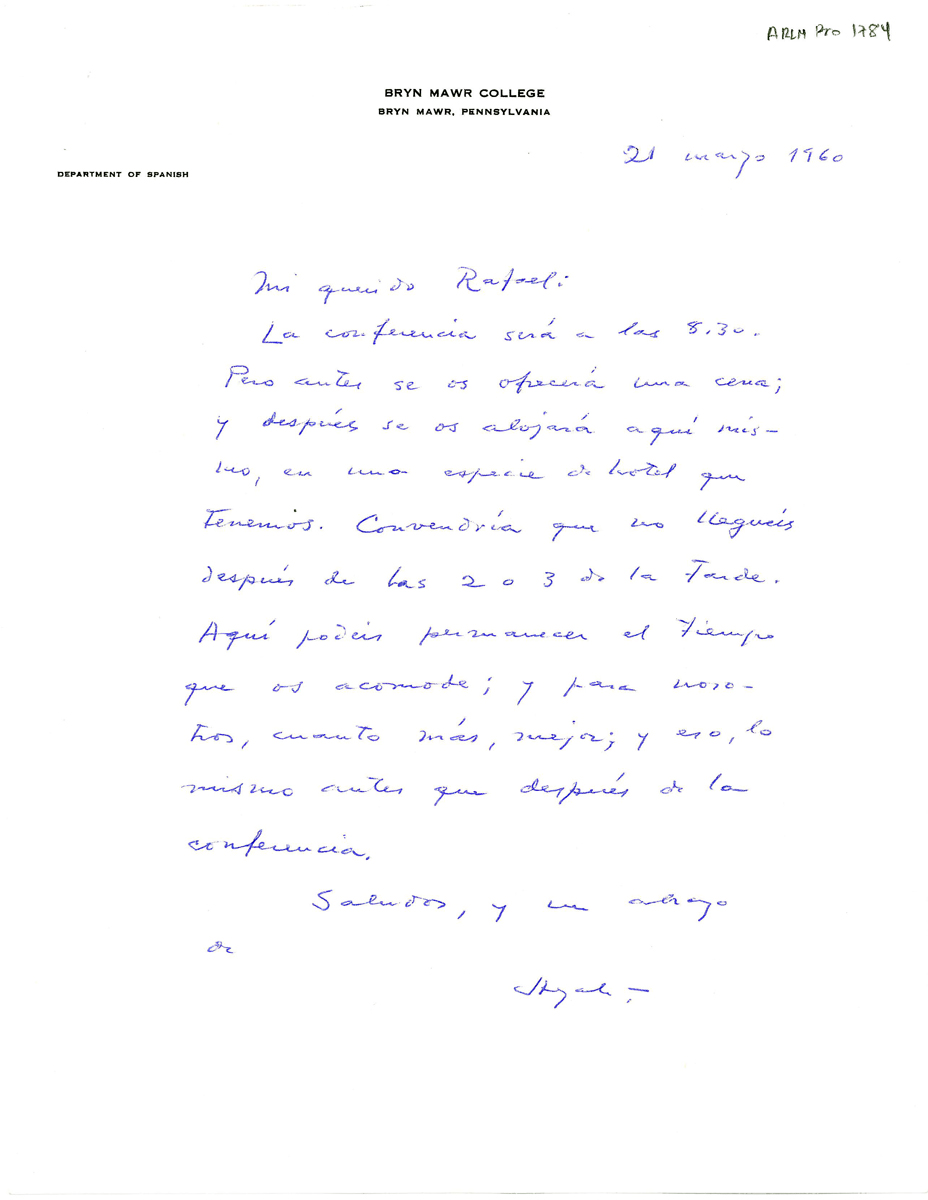 ARLM Pro 1784
BRYN MAWR COLLEGE
BRYN MAWR, PENNSYLVANIA
21 marzo 1960
DEPARTMENT OF SPANISH
Mi querido Rafael:
La conferencia será a las 8.30.
Pero antes se os ofrecerá una cena;
y después se os alojará aquí mis-
mo, en una especie de hotel que
tenemos. Convendría que no lleguéis
después de las 2 o 3 de la tarde.
Aquí podéis permanecer el tiempo
que os acomode; y para noso-
tros, cuanto más, mejor; y eso, lo
mismo antes que después de la
conferencia.
Saludos, y un abrazo
de
Ayala